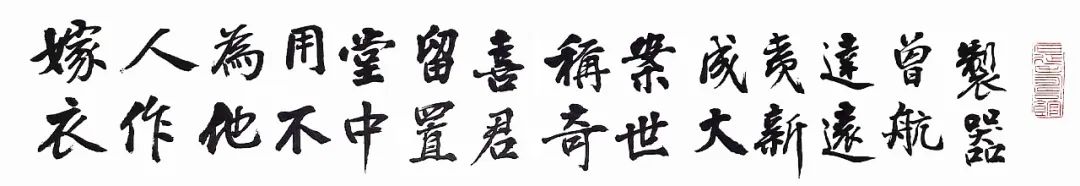 製器
曾航
達遠
夷新
成大
案世
稱奇
喜君
留置
堂中
用不
為他
人作
嫁衣